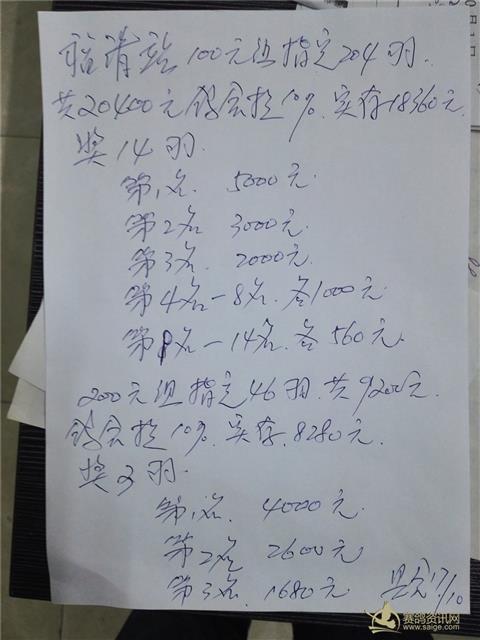 福清站100元组指定204羽.
共20400元鸽会提10%.实存18360元.
奖14羽.
第1名. 5000元
第2名 3000元.
第3名. 2000元.
第4名-8名.各1000元.
第9名-14名.各560元.
200元组指定46羽.共9200元.
鸽会提10%.实存.8280元.
奖3羽.
第1名. 4000元
第2名 2600元
第3名. 1680元
17/10
赛鸽资讯网
www.saige.com